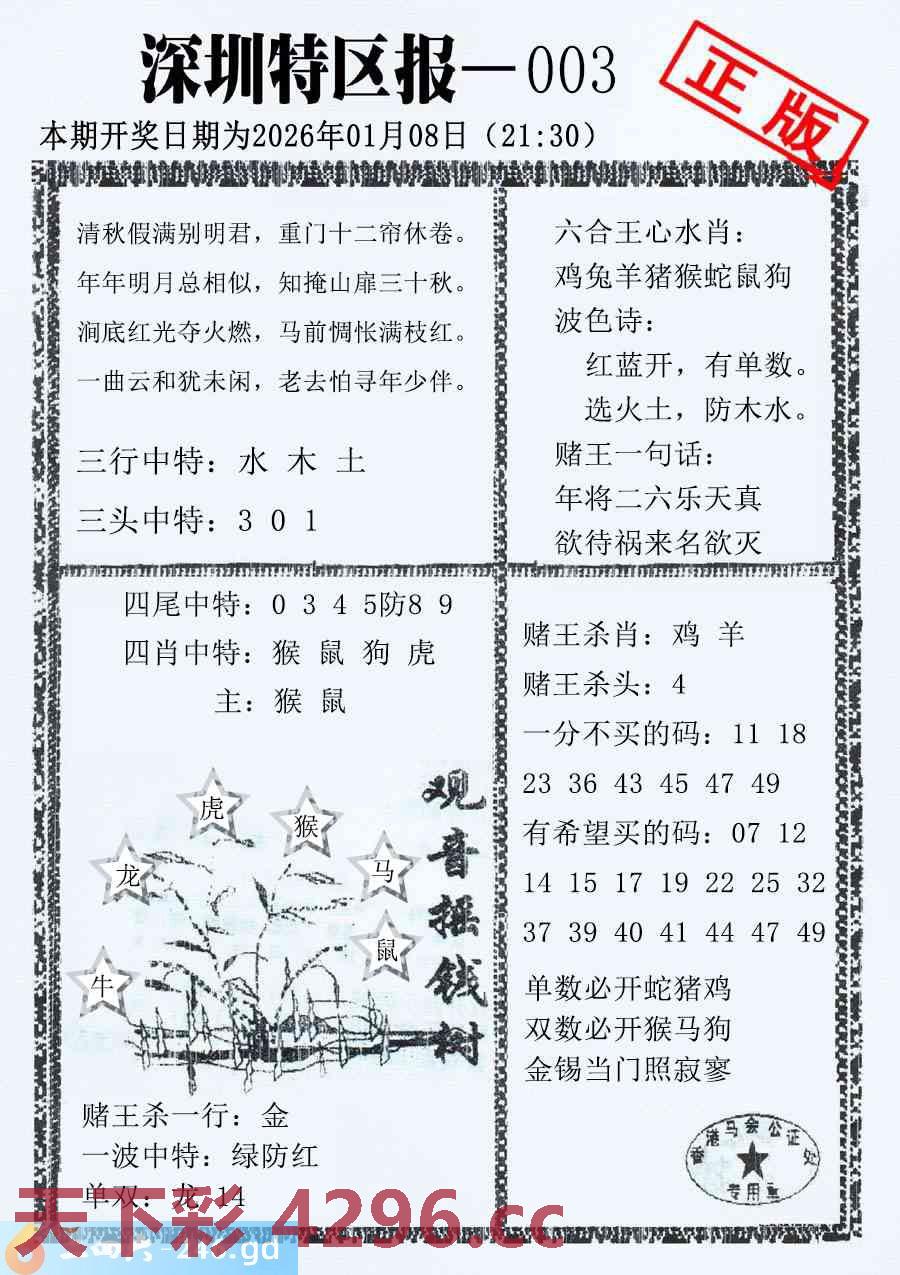 深圳特区报—003
正版
本期开奖日期为2026年01月08日（21:30）
清秋假满别明君，重门十二帘休卷。
年年明月总相似，知掩山扉三十秋。
涧底红光夺火燃，马前惆怅满枝红。
一曲云和犹未闲，老去怕寻年少伴。
三行中特：水 木 土
三头中特：3 0 1
六合王心水肖：
鸡兔羊猪猴蛇鼠狗
波色诗：
红蓝开，有单数。
选火土，防木水。
赌王一句话：
年将二六乐天真
欲待祸来名欲灭
四尾中特：0 3 4 5防8 9
四肖中特：猴 鼠 狗 虎
主：猴 鼠
观音摇钱树
虎
猴
龙
马
鼠
牛
赌王杀一行：金
一波中特：绿防红
单双：龙 14
赌王杀肖：鸡 羊
赌王杀头：4
一分不买的码：11 18
23 36 43 45 47 49
有希望买的码：07 12
14 15 17 19 22 25 32
37 39 40 41 44 47 49
单数必开蛇猪鸡
双数必开猴马狗
金锡当门照寂寥
香港马会公证处
专用章
天下彩 4296.cc